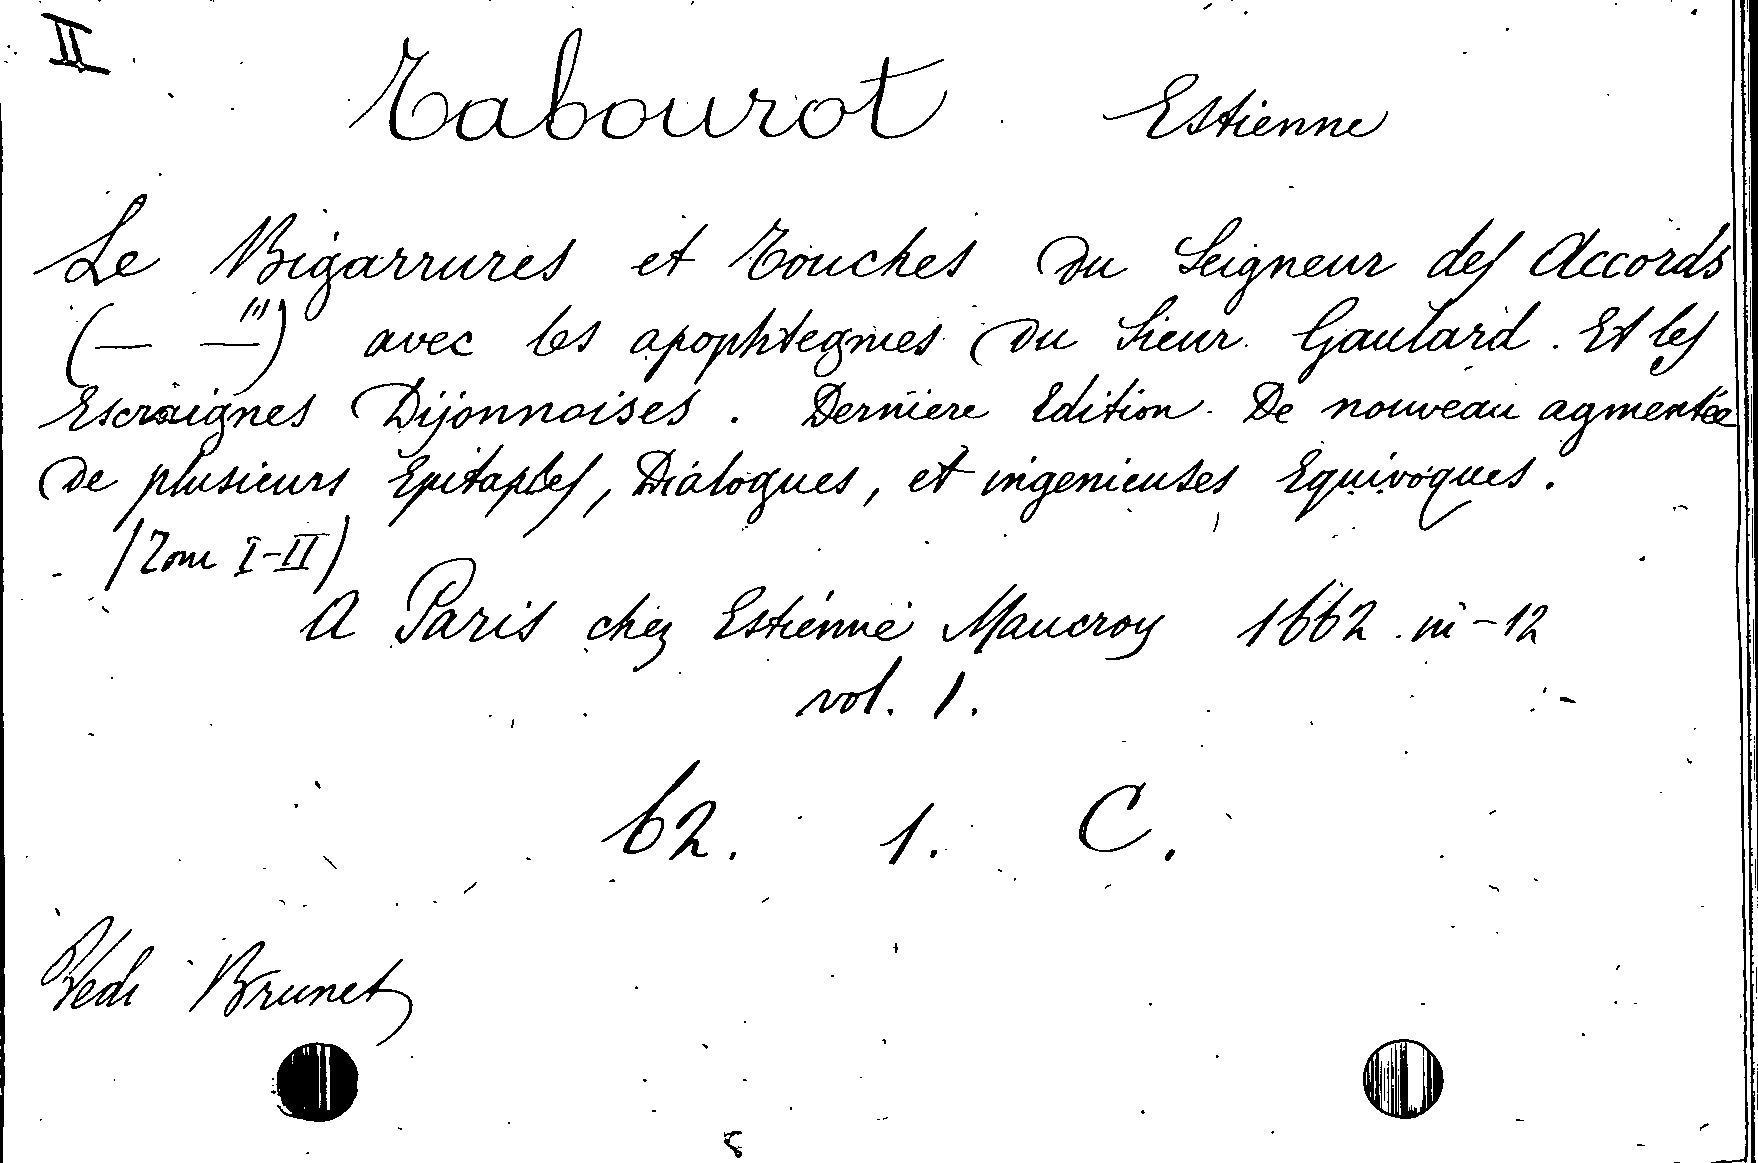 II
Tabourot Estienne
Le Bigarrures et Touches du Seigneur des Accords
(— —"') avec les apophtegmes du Sieur Gaulard. Et les
Escraignes Dijonnoises. Derniere Edition. De nouveau agmentée
de plusieurs Epitaphes, Dialogues, et ingenieuses Equivoques.
(Tom I-II)
A Paris chez Estienne Maucroy 1662 in-12
vol. 1.
62. 1. C.
Vedi Brunet